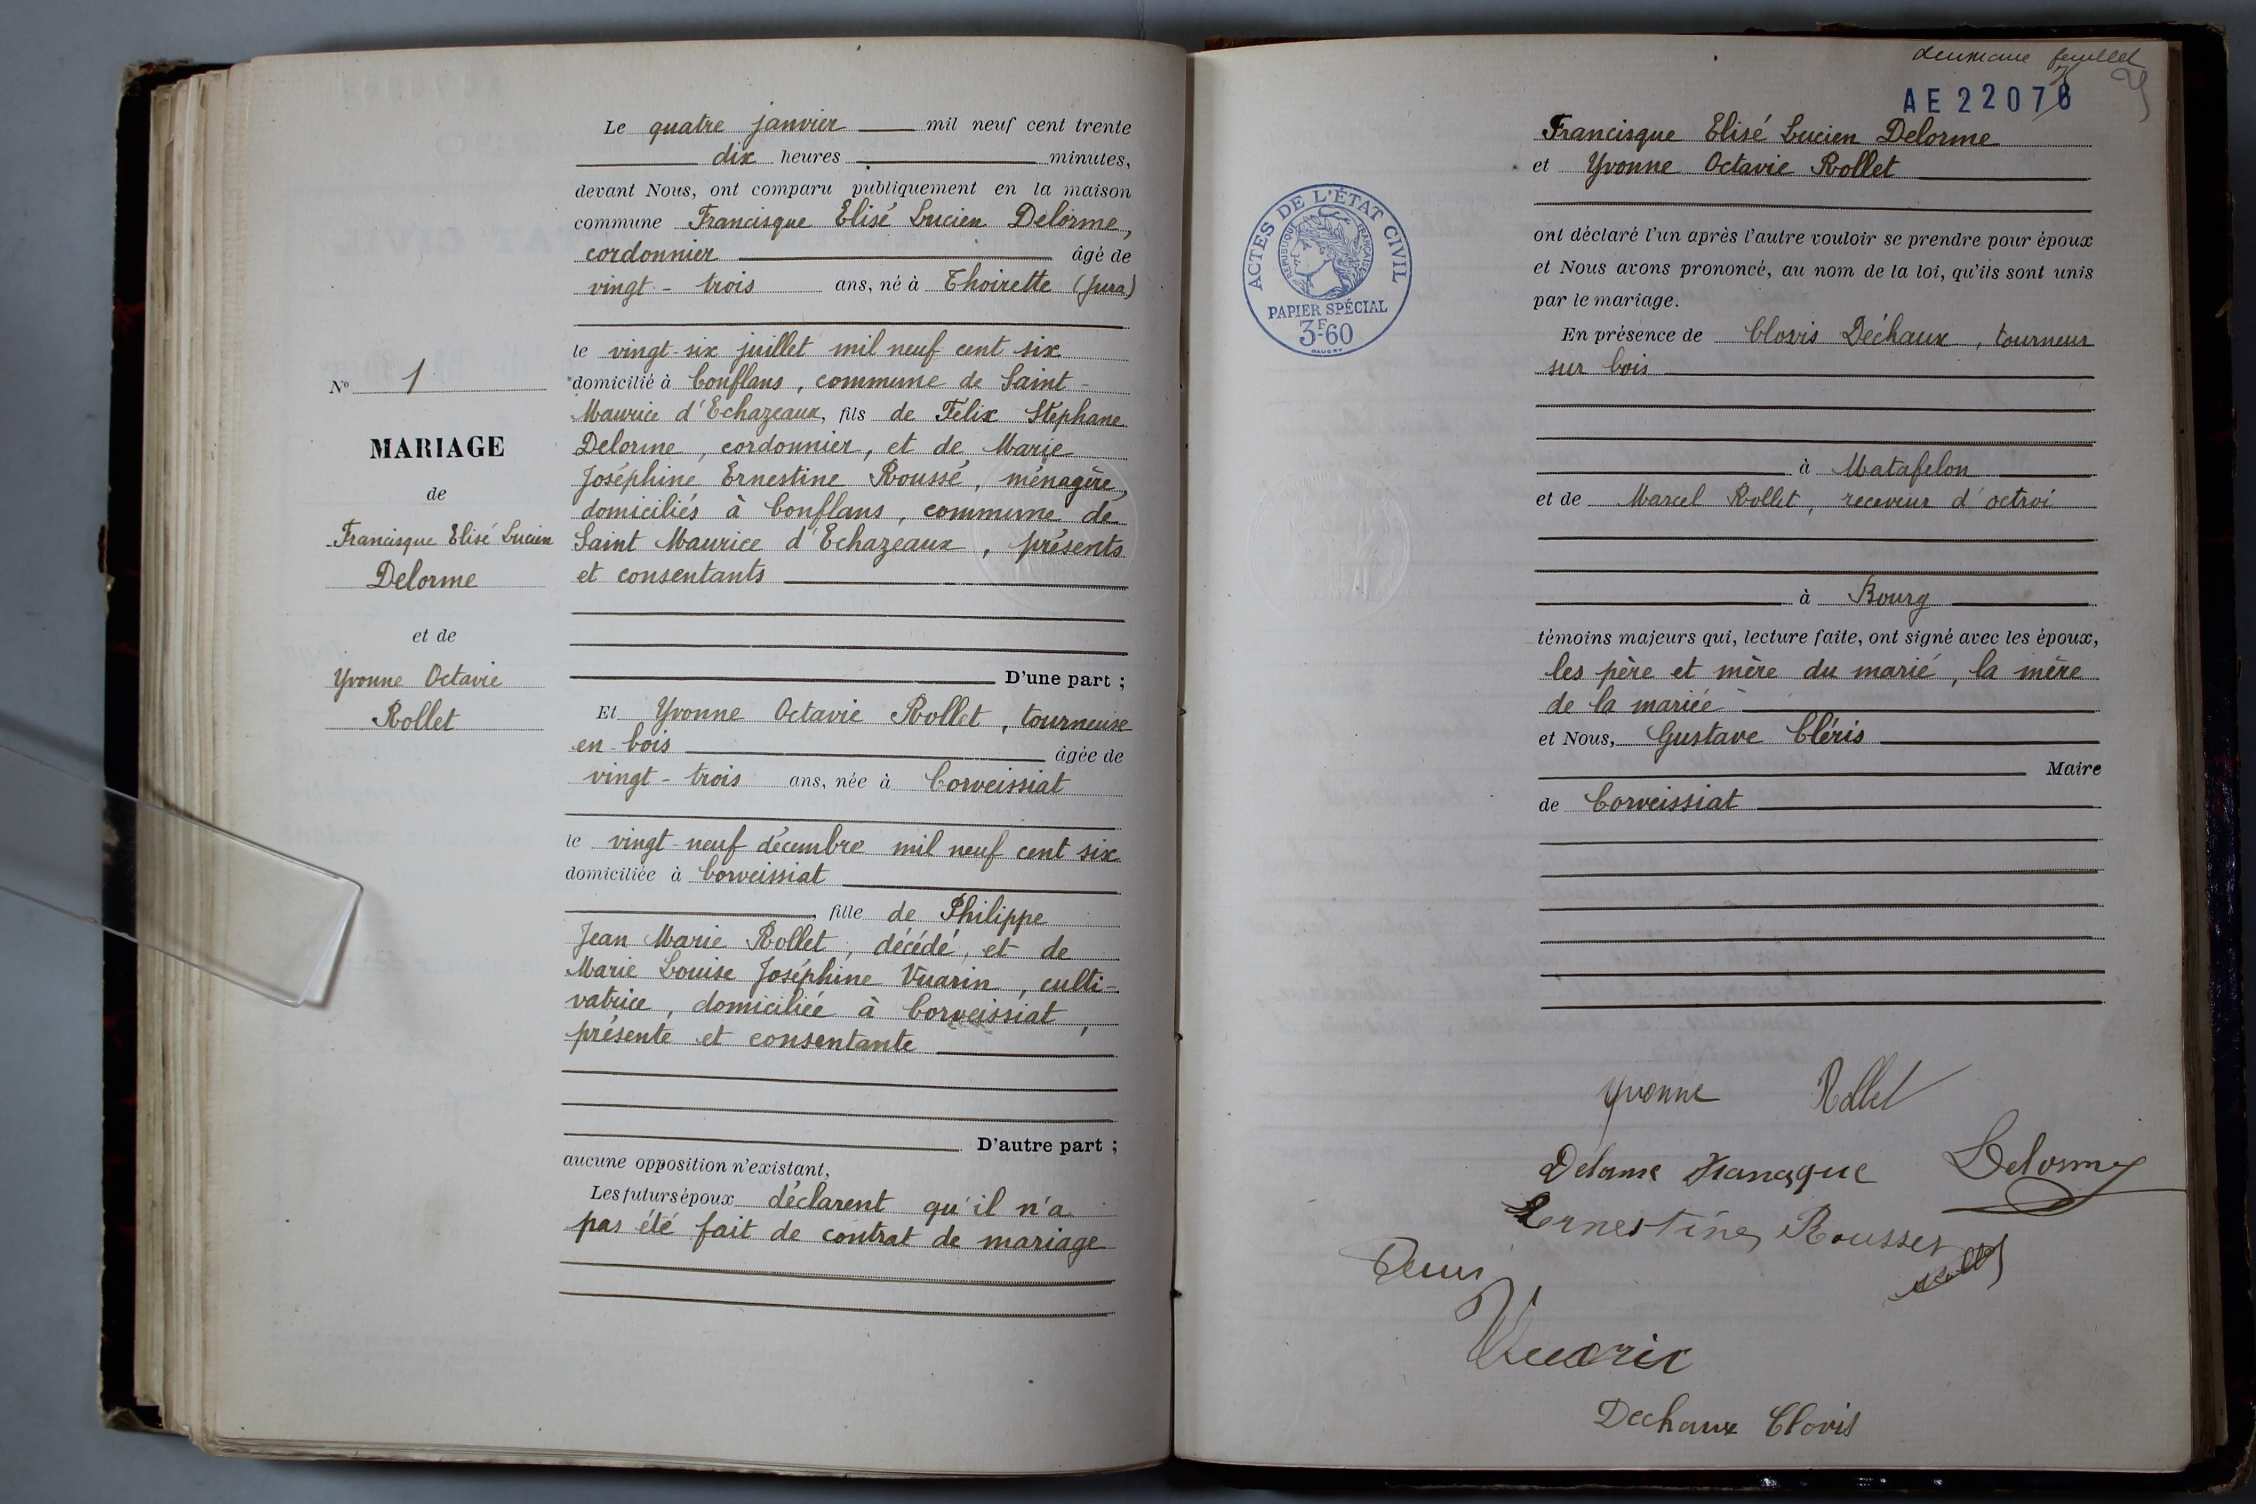 Le quatre janvier mil neuf cent trente
dix heures minutes,
devant Nous, ont comparu publiquement en la maison
commune Francisque Elisé Lucien Delorme,
cordonnier âgé de
vingt-trois ans, né à Thoirette (Jura)
le vingt-six juillet mil neuf cent six
domicilié à Conflans, commune de Saint-
Maurice d'Echazeaux, fils de Félix Stéphane
Delorme, cordonnier, et de Marie
Joséphine Ernestine Roussé, ménagère,
domiciliés à Conflans, commune de
Saint Maurice d'Echazeaux, présents
et consentants
D'une part ;
Et Yvonne Octavie Rollet, tourneuse
en bois âgée de
vingt-trois ans, née à Corveissiat
le vingt-neuf décembre mil neuf cent six
domiciliée à Corveissiat
, fille de Philippe
Jean Marie Rollet, décédé, et de
Marie Louise Joséphine Vuarin, culti-
vatrice, domiciliée à Corveissiat,
présente et consentante
D'autre part ;
aucune opposition n'existant,
Les futurs époux déclarent qu'il n'a
pas été fait de contrat de mariage
N° 1
MARIAGE
de
Francisque Elisé Lucien
Delorme
et de
Yvonne Octavie
Rollet
feuillet
AE 2207
Francisque Elisé Lucien Delorme
et Yvonne Octavie Rollet
ont déclaré l'un après l'autre vouloir se prendre pour époux
et Nous avons prononcé, au nom de la loi, qu'ils sont unis
par le mariage.
En présence de Clovis Déchaux, tourneur
sur bois
à Matafelon
et de Marcel Rollet, receveur d'octroi
à Bourg
témoins majeurs qui, lecture faite, ont signé avec les époux,
les père et mère du marié, la mère
de la mariée
et Nous, Gustave Cléris
Maire
de Corveissiat
ACTES DE L'ÉTAT CIVIL
REPUBLIQUE FRANÇAISE
PAPIER SPÉCIAL
3F60
Yvonne Rollet
Delorme Francisque Delorme
Ernestine Rousset
Rollet
Vuarin
Dechaux Clovis